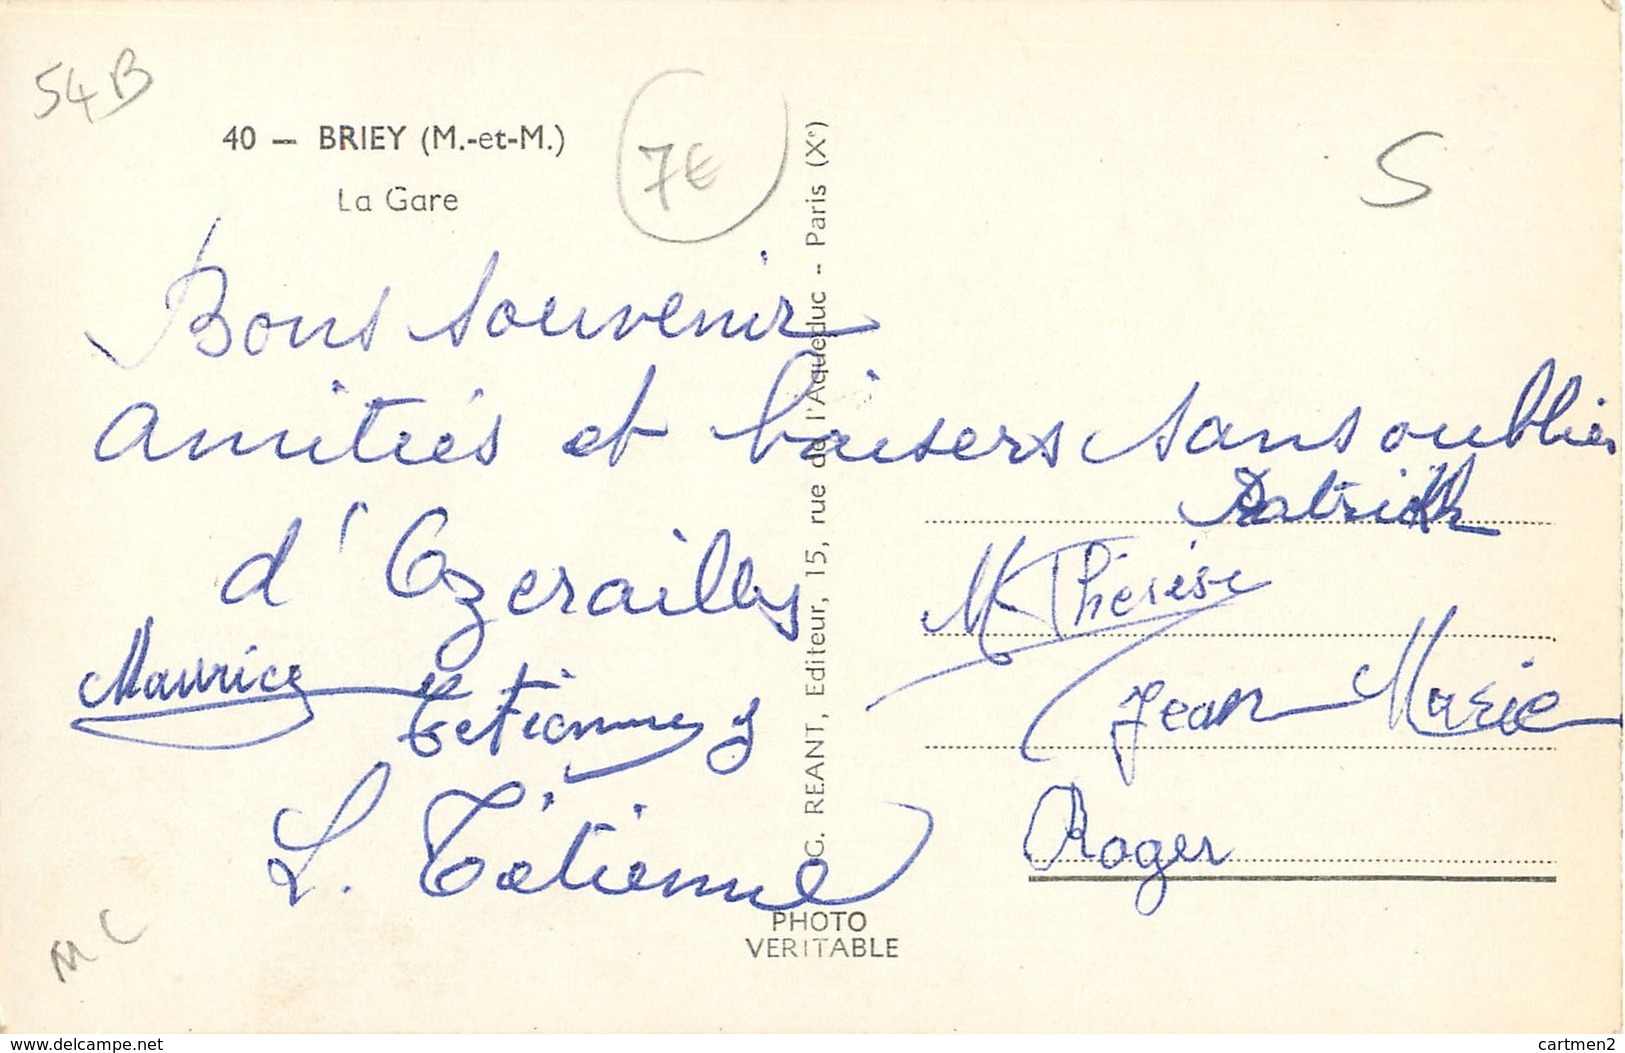 54 B
40 — BRIEY (M.-et-M.)
La Gare
7€
S
Bons souvenir
amitiés et baisers sans oublier
Patrick
d'Ozerailly
M Thérèse
Maurice
Jean Marie
L. Tétienne
Roger
G. REANT, Editeur, 15, rue de l'Aqueduc - Paris (Xᵉ)
PHOTO
VERITABLE
M C
www.delcampe.net
cartmen2